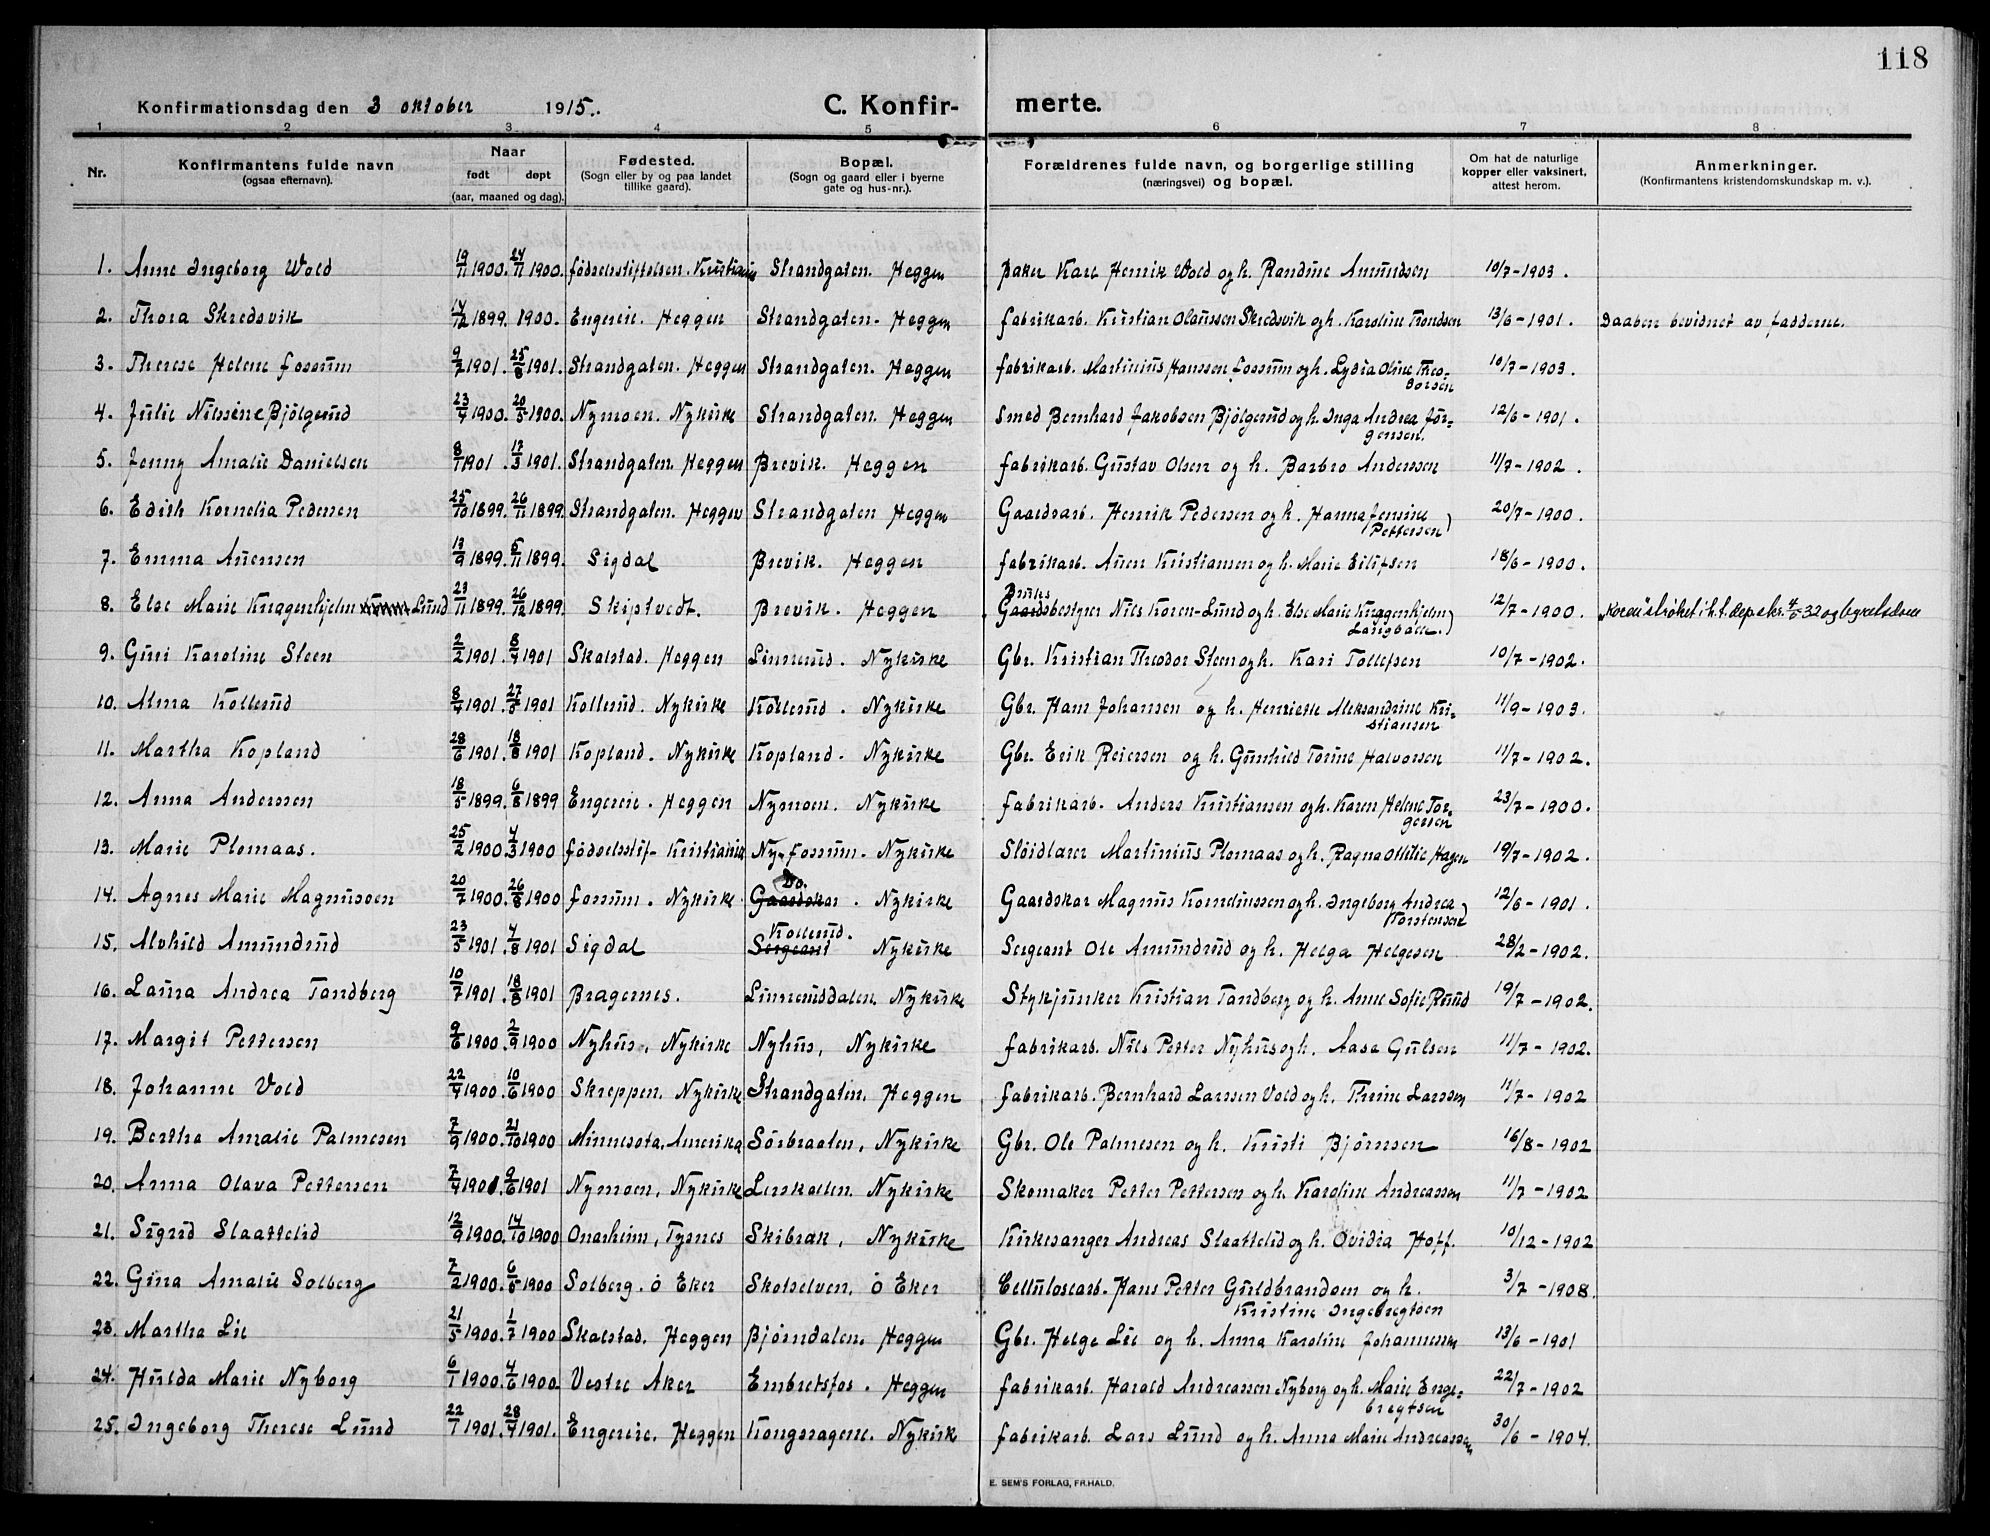 118
Konfirmationsdag den 3 oktober 1915. C. Konfir- merte.
1 2 3 4 5 6 7 8
Nr. Konfirmantens fulde navn (ogsaa efternavn). Naar født døpt (aar, maaned og dag). Fødested. (Sogn eller by og paa landet tillike gaard). Bopæl. (Sogn og gaard eller i byerne gate og hus-nr.). Forældrenes fulde navn, og borgerlige stilling (næringsvei) og bopæl. Om hat de naturlige kopper eller vaksinert, attest herom. Anmerkninger. (Konfirmantens kristendomskundskap m. v.).
1. Anne Ingeborg Wold 19/11 1900. 24/11 1900. fødselsstiftelsen. Kristiania Strandgaten. Heggen Baker Karl Henrik Wold og h. Randine Amundsen 10/7-1903.
2. Thora Skredsvik 14/12 1899. 1900. Engereie. Heggen Strandgaten. Heggen fabrikarb. Kristian Olaussen Skredsvik og h. Karoline Trondsen 13/6-1901. Daaben bevidnet av fadderne.
3. Therese Helene Fossum 9/2 1901. 25/8 1901. Strandgaten. Heggen Strandgaten. Heggen fabrikarb. Martinius Hanssen Fossum og h. Lydia Oline Theo-
dorsen 10/7-1903.
4. Julie Nilssine Bjölgerud 23/4 1900. 20/5 1900. Nymoen. Nykirke Strandgaten. Heggen Smed Bernhard Jakobsen Bjölgerud og h. Inga Andrea Jör-
gensen. 12/6-1901.
5. Jenny Amalie Danielsen 8/1 1901. 17/3 1901. Strandgaten. Heggen Brevik. Heggen fabrikarb. Gustav Olsen og h. Barbro Anderssen 11/7-1902.
6. Edith Kornelia Pedersen 25/10 1899. 26/11 1899. Strandgaten. Heggen Strandgaten Heggen Gaardsarb. Henrik Pedersen og h. Hanna Jensine
Pettersen) 20/7-1900.
7. Emma Auensen 13/9 1899. 5/11 1899. Sigdal Brevik. Heggen fabrikarb. Auen Kristiansen og h. Marie Eilifsen 18/6-1900.
8. Else Marie Kuggenhjelm Koren Lund 23/11 1899. 26/12 1899. Skiptvedt. Brevik. Heggen Bruks
Gaardsbestyrer Nils Koren-Lund og h. Else Marie Kuggenhjelm
Langballe.) 12/7-1900. "Koren" strøket i h.t. dep.skr. 4/5-32 og bycelsdom
9. Guri Karoline Steen 2/2 1901. 8/4 1901 Skalstad. Heggen Linnerud. Nykirke Gbr. Kristian Theodor Steen og h. Kari Tollefsen 10/7-1902.
10. Alma Kollerud 8/4 1901. 27/5 1901 Kollerud. Nykirke Kollerud. Nykirke Gbr. Hans Johansen og h. Henriette Aleksandrine Kri-
stiansen 11/9-1903.
11. Martha Kopland 28/6 1901. 18/8 1901 Kopland. Nykirke Kopland. Nykirke Gbr. Erik Reiersen og h. Gunhild Torine Halvorsen 11/7-1902.
12. Anna Anderssen 18/5 1899. 6/8 1899 Engereie. Heggen Nymoen. Nykirke fabrikarb. Anders Kristiansen og h. Karen Helene Tor-
gersen 23/7-1900.
13. Marie Plomaas. 25/2 1900. 4/3 1900 fødselsstif- Kristiania Ny-Fossum. Nykirke Slöidlærer Martinius Plomaas og h. Ragna Othilie Hagen 19/7-1902.
14. Agnes Marie Magnussen 20/7 1900. 26/8 1900 Fossum. Nykirke Do.
Gaardskar. Nykirke Gaardskar Magnus Korneliussen og h. Ingeborg Andrea
Torstensen) 12/6-1901.
15. Alvhild Amundrud 23/5 1901. 4/8 1901 Sigdal Kollerud.
Sergeant Nykirke Sergeant Ole Amundrud og h. Helga Helgesen 28/2-1902.
16. Laura Andrea Tandberg 10/7 1901. 18/8 1901 Bragernes. Linnerudsdalen. Nykirke Stykjunker Kristian Tandberg og h. Anne Sofie Ruud 19/7-1902.
17. Margit Pettersen 9/6 1900. 2/9 1900 Nyhus, Nykirke Nyhus, Nykirke fabrikarb. Nils Petter Nyhus og h. Aasa Gulsen 11/7-1902.
18. Johanne Vold 22/4 1900. 10/6 1900 Skreppen, Nykirke Strandgaten, Heggen fabrikarb. Bernhard Larssen Vold og h. Thrine Larssen 11/7-1902
19. Bertha Amalie Palmesen 7/9 1900. 21/10 1900 Minnesota, Amerika Sørbraaten, Nykirke Gbr. Ole Palmesen og h. Kristi Bjørnsen 16/8-1902
20. Anna Olava Pettersen 7/4 1901. 9/6 1901 Nymoen, Nykirke Lerskallen. Nykirke Skomaker Petter Pettersen og h. Karoline Andreassen 11/7-1902
21. Sigrid Slaattelid 12/9 1900. 14/10 1900 Onarheim, Tysnes Skibrak, Nykirke Kirkesanger Andreas Slaattelid og h. Ovidia Hoff. 10/12-1902
22. Gina Amalie Solberg 7/2 1900. 6/5 1900 Solberg. Ö Eker Skotselven. Ö Eker Cellulosearb. Hans Petter Guldbrandsen og h.
Kristine Ingebregtsen 3/7-1908.
23. Martha Lie 21/5 1900. 1/7 1900 Skalstad, Heggen Bjørndalen. Heggen Gbr. Helge Lie og h. Anna Karoline Johannessen 13/6-1901
24. Hulda Marie Nyborg 6/1 1900. 4/6 1900 Vestre Aker Embretsfos. Heggen fabrikarb. Harald Andreassen Nyborg og h. Marie Enge-
bregtsen 22/7-1902
25. Ingeborg Therese Lund 22/1 1901. 28/4 1901. Engereie. Heggen Kongsvagene. Nykirk fabrikarb. Lars Lund og h. Anna Marie Andreassen 30/6-1904.
E. SEM'S FORLAG, FR.HALD.